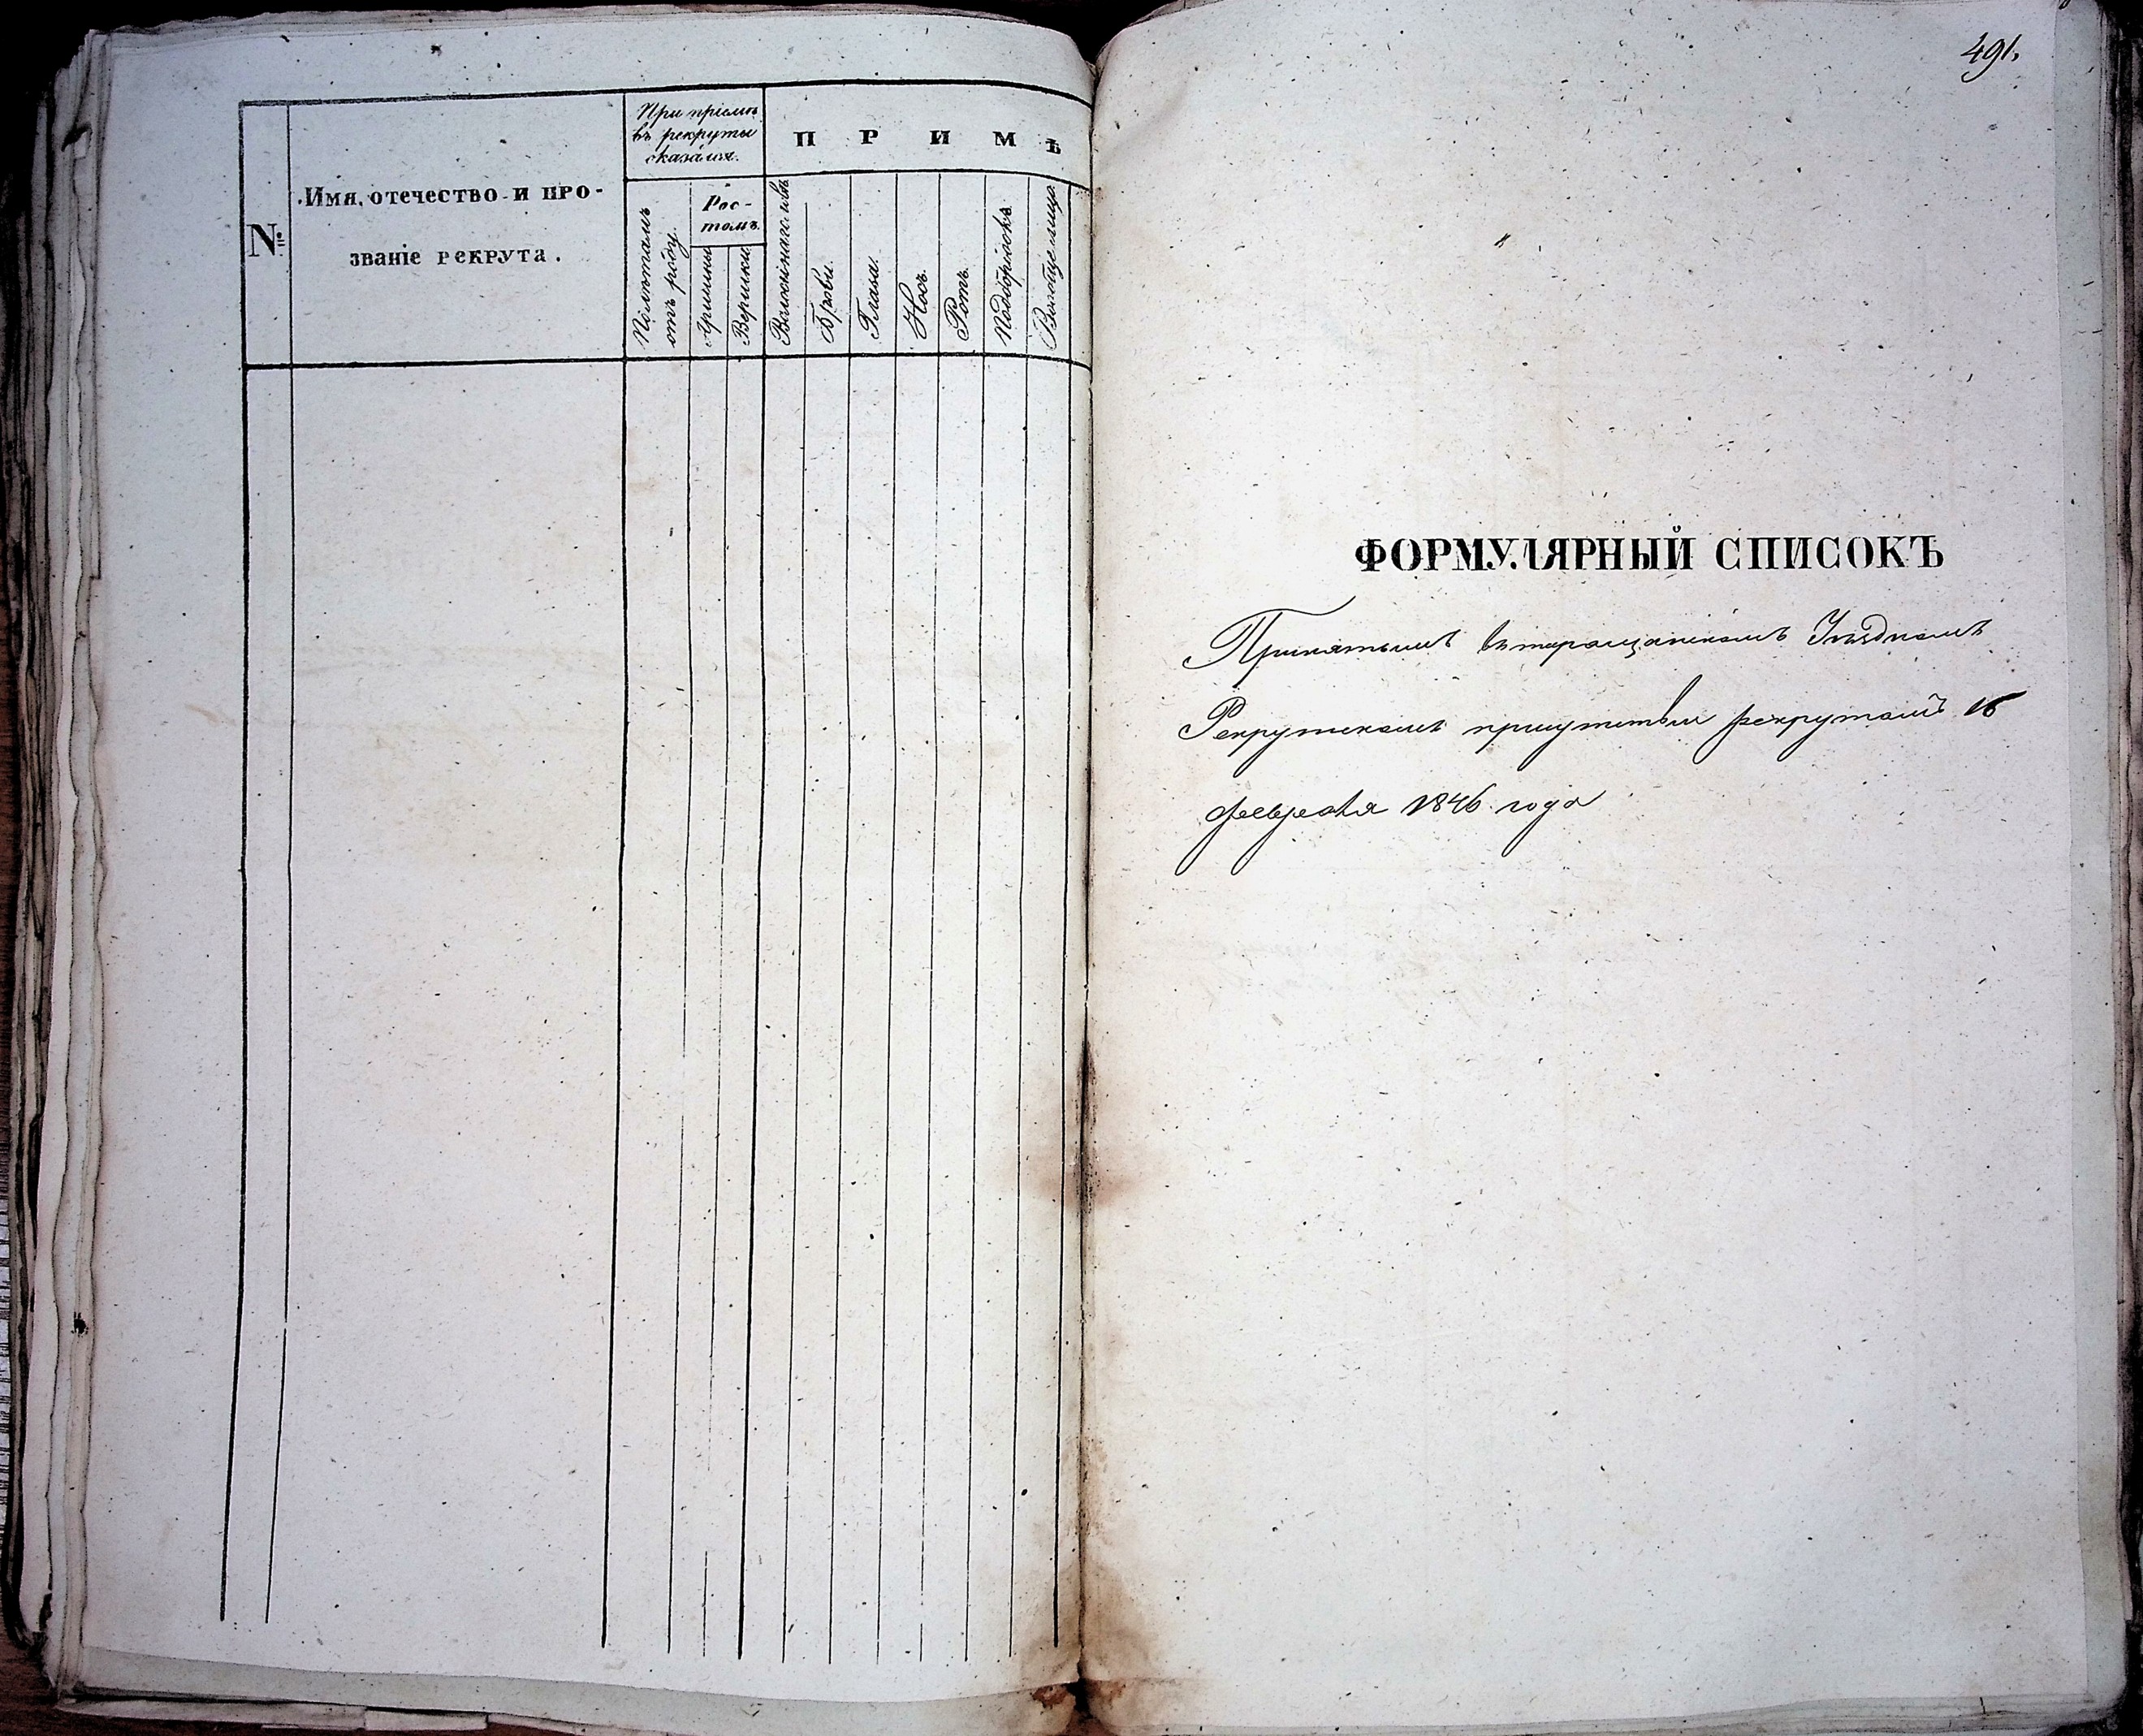 №
Имя, отечество и про-
званіе рекрута.
При пріемѣ
въ рекруты
оказался.
По лѣтамъ
отъ роду.
Рос-
томъ.
Аршины
Вершки
П Р И М Ѣ
Брови.
Глаза.
Носъ.
Ротъ.
Подбородокъ
Вообще лицо.
491.
ФОРМУЛЯРНЫЙ СПИСОКЪ
Принятымъ въ таращанскомъ Уѣздномъ
Рекрутскомъ присутствіи рекрутамъ 16
февраля 1846 года